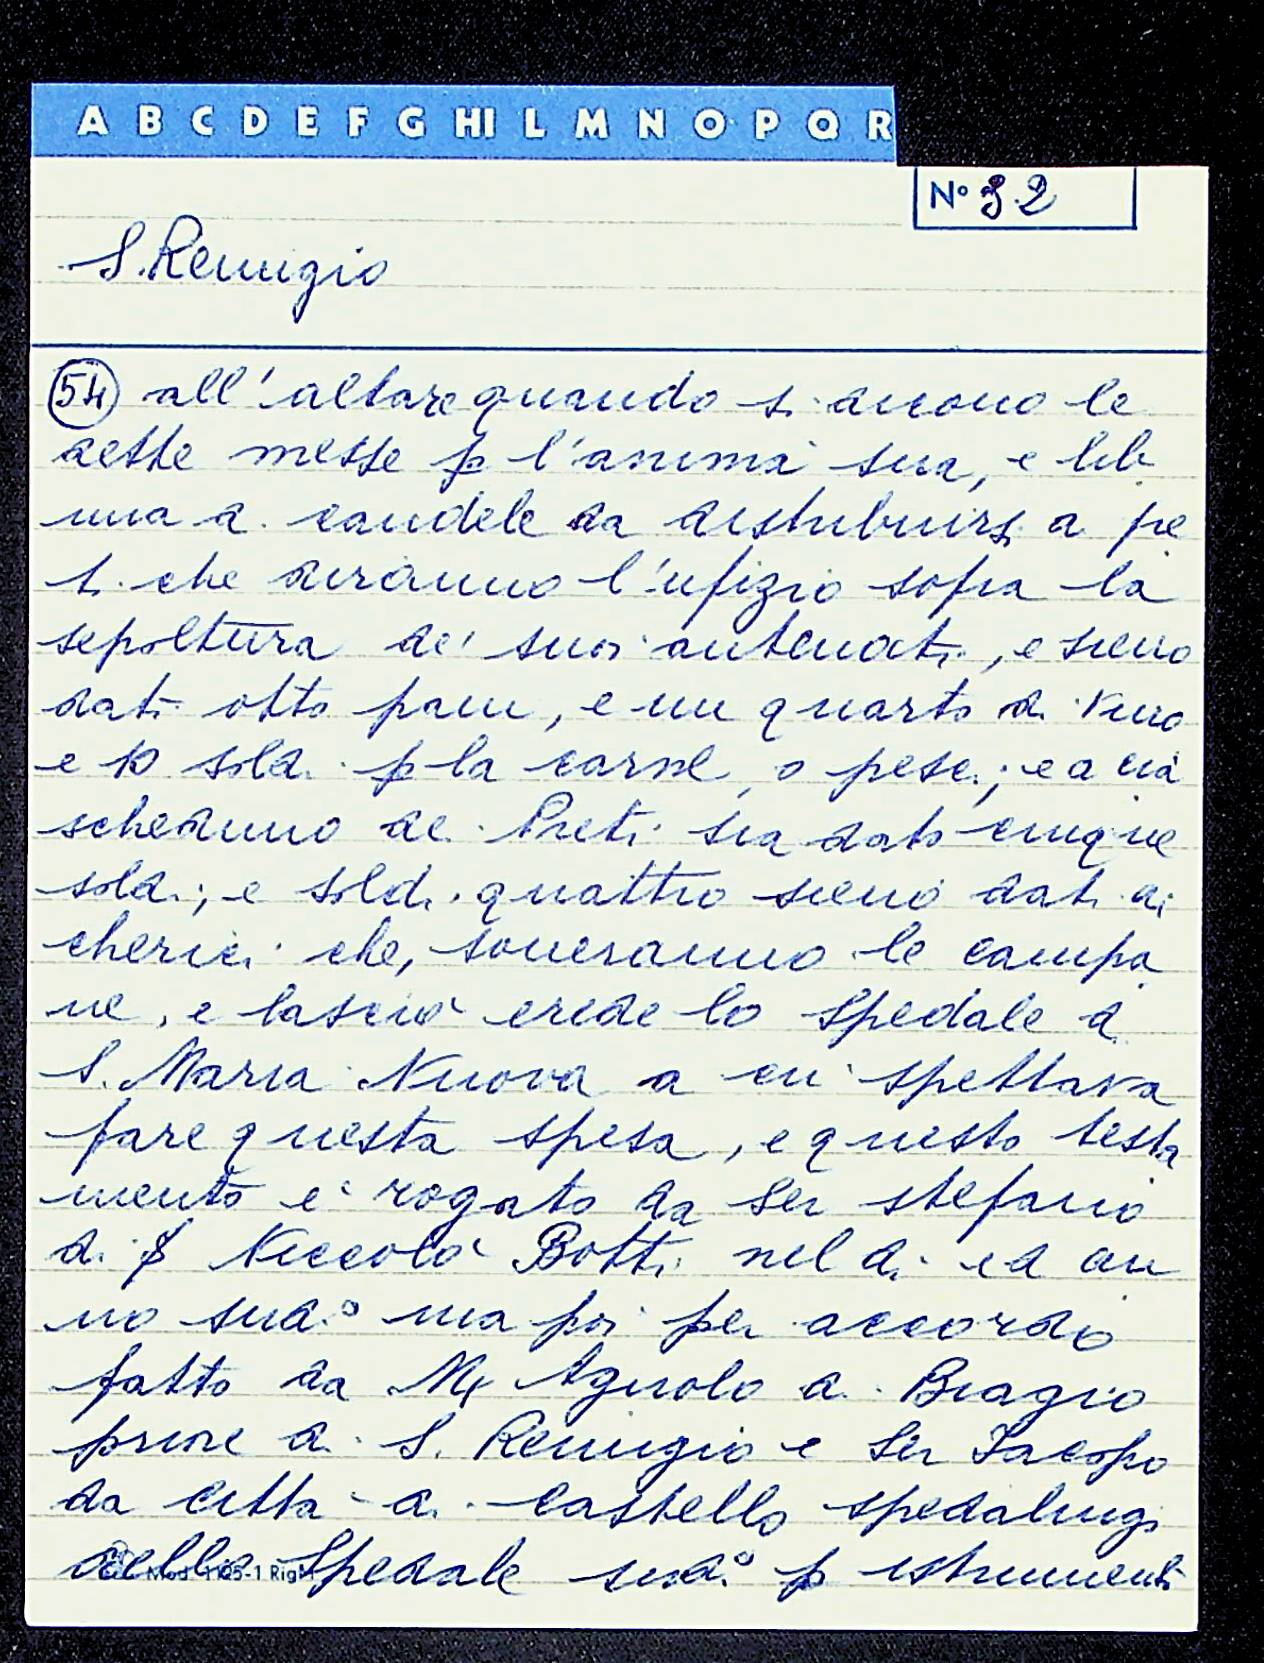 A B C D E F G HI L M N O P Q R
N° 32
S. Remigio
54 all'altare quando si dicono le
dette messe p l'anima sua, e lib
una di candele da distribuirsi a pre
ti che diranno l'ufizio sopra la
sepoltura de' suoi antenati, e sieno
dati otto pani, e un quarto di vino
e 10 soldi p la carne, o pesci; e a cia
scheduno de Preti sia dato cinque
soldi; e soldi quattro sieno dati ai
cherici che, soneranno le campa
ne, e lasciò erede lo Spedale di
S. Maria Nuova a cui spettava
fare questa spesa, e questo testa
mento e' rogato da Ser Stefano
di Niccolò Botti nel di ed an
no sud.° ma poi per accordo
fatto da Mr Agnolo di Biagio
priore di S. Remigio e Ser Jacopo
da Citta di Castello spedalingo
dello Spedale sud.° p istrumenti
Mod. 1105-1 Rig